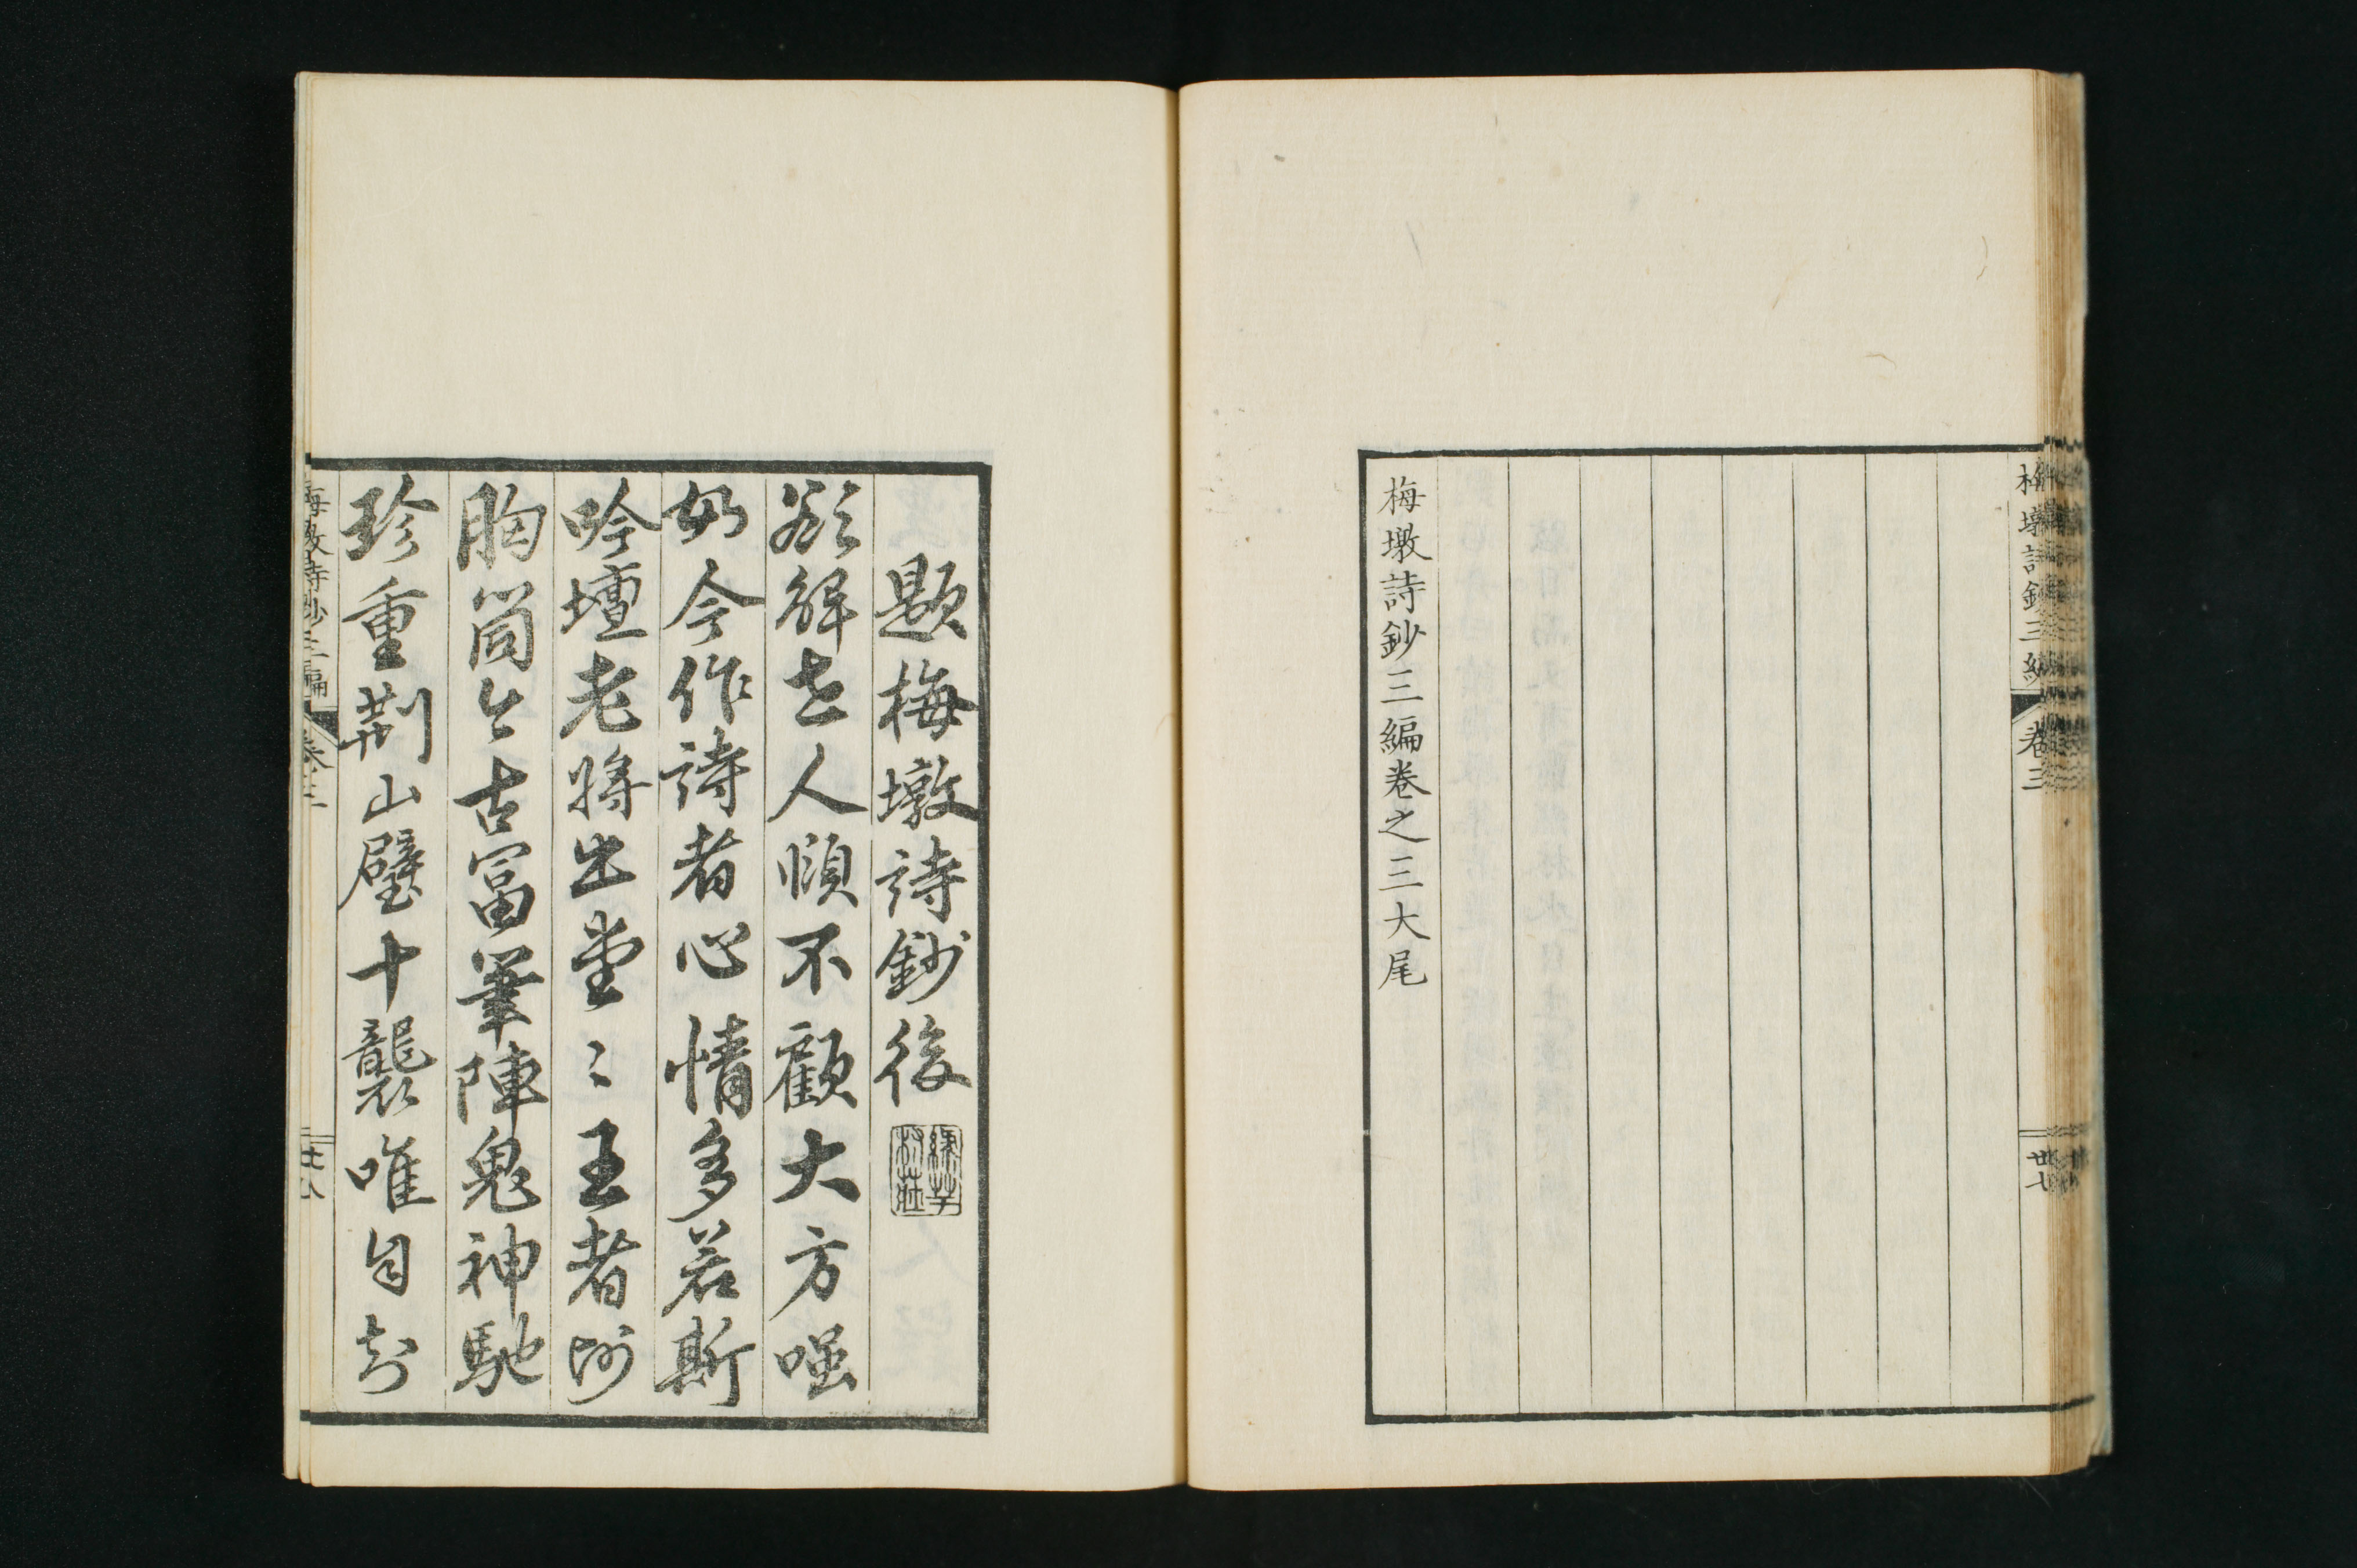 梅墩詩鈔三編
卷三
卅七
梅墩詩鈔三編卷之三大尾
題梅墩詩鈔後
欲解世人頤不顧大方嗤
如今作詩者心情多若斯
吟壇老將出堂〻王者師
胸笥今古富筆陣鬼神馳
珍重荊山璧十襲唯自知
梅墩詩鈔三編
卷三